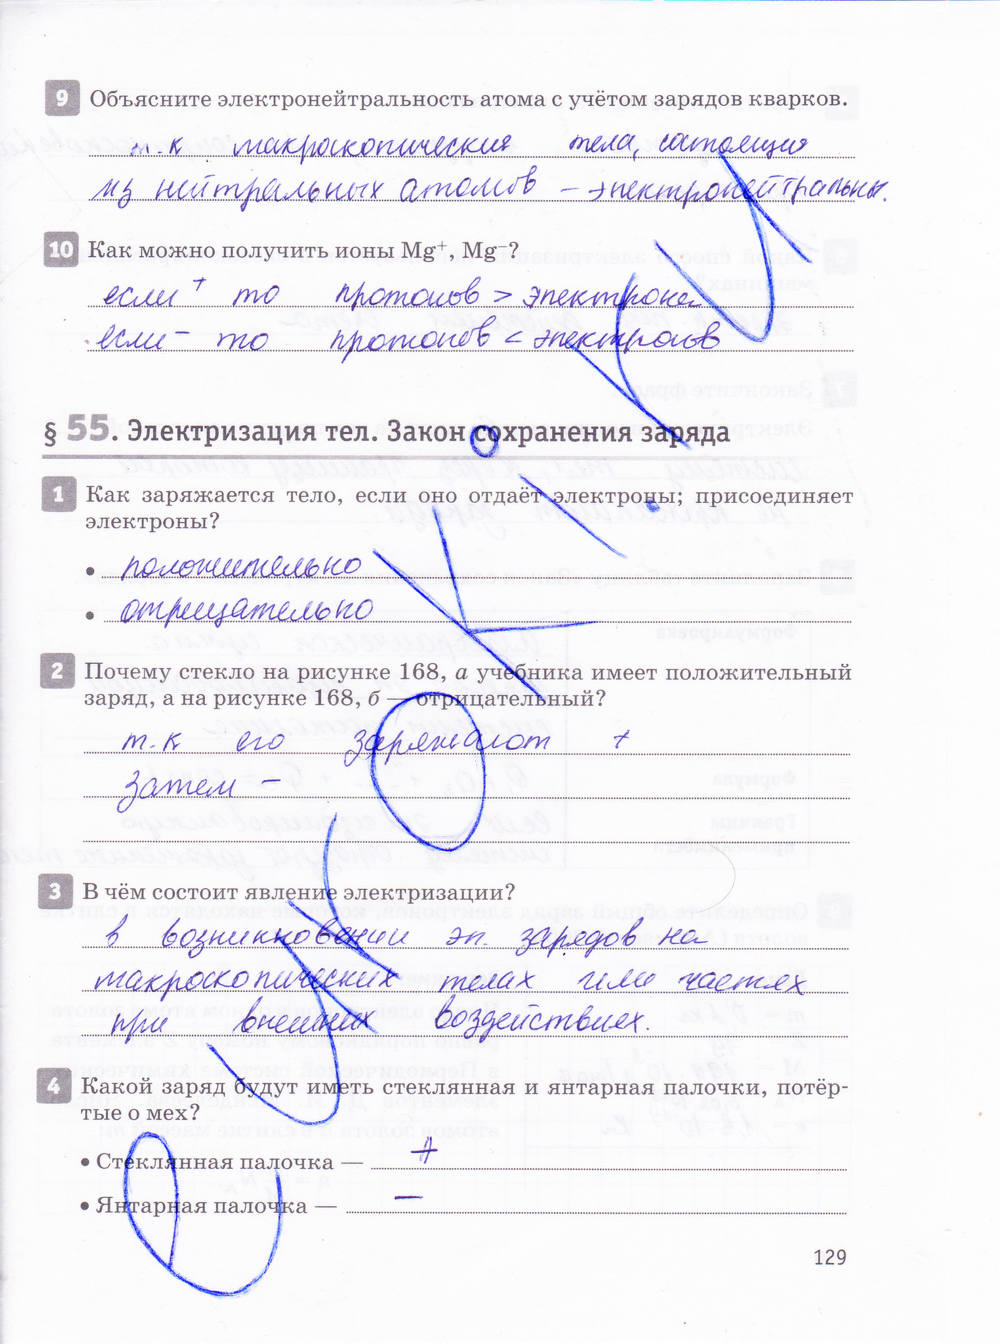 9 Объясните электронейтральность атома с учётом зарядов кварков.
т.к макроскопические тела, состоящие
из нейтральных атомов – электронейтральны.
10 Как можно получить ионы Mg⁺, Mg⁻?
если + то протонов > электронов
если – то протонов < электронов
§ 55. Электризация тел. Закон сохранения заряда
1 Как заряжается тело, если оно отдаёт электроны; присоединяет
электроны?
• положительно
• отрицательно
2 Почему стекло на рисунке 168, а учебника имеет положительный
заряд, а на рисунке 168, б — отрицательный?
т.к его заряжают +
затем –
3 В чём состоит явление электризации?
в возникновении эл. зарядов на
макроскопических телах или частях
при внешних воздействиях.
4 Какой заряд будут иметь стеклянная и янтарная палочки, потёр-
тые о мех?
• Стеклянная палочка — +
• Янтарная палочка — –
129